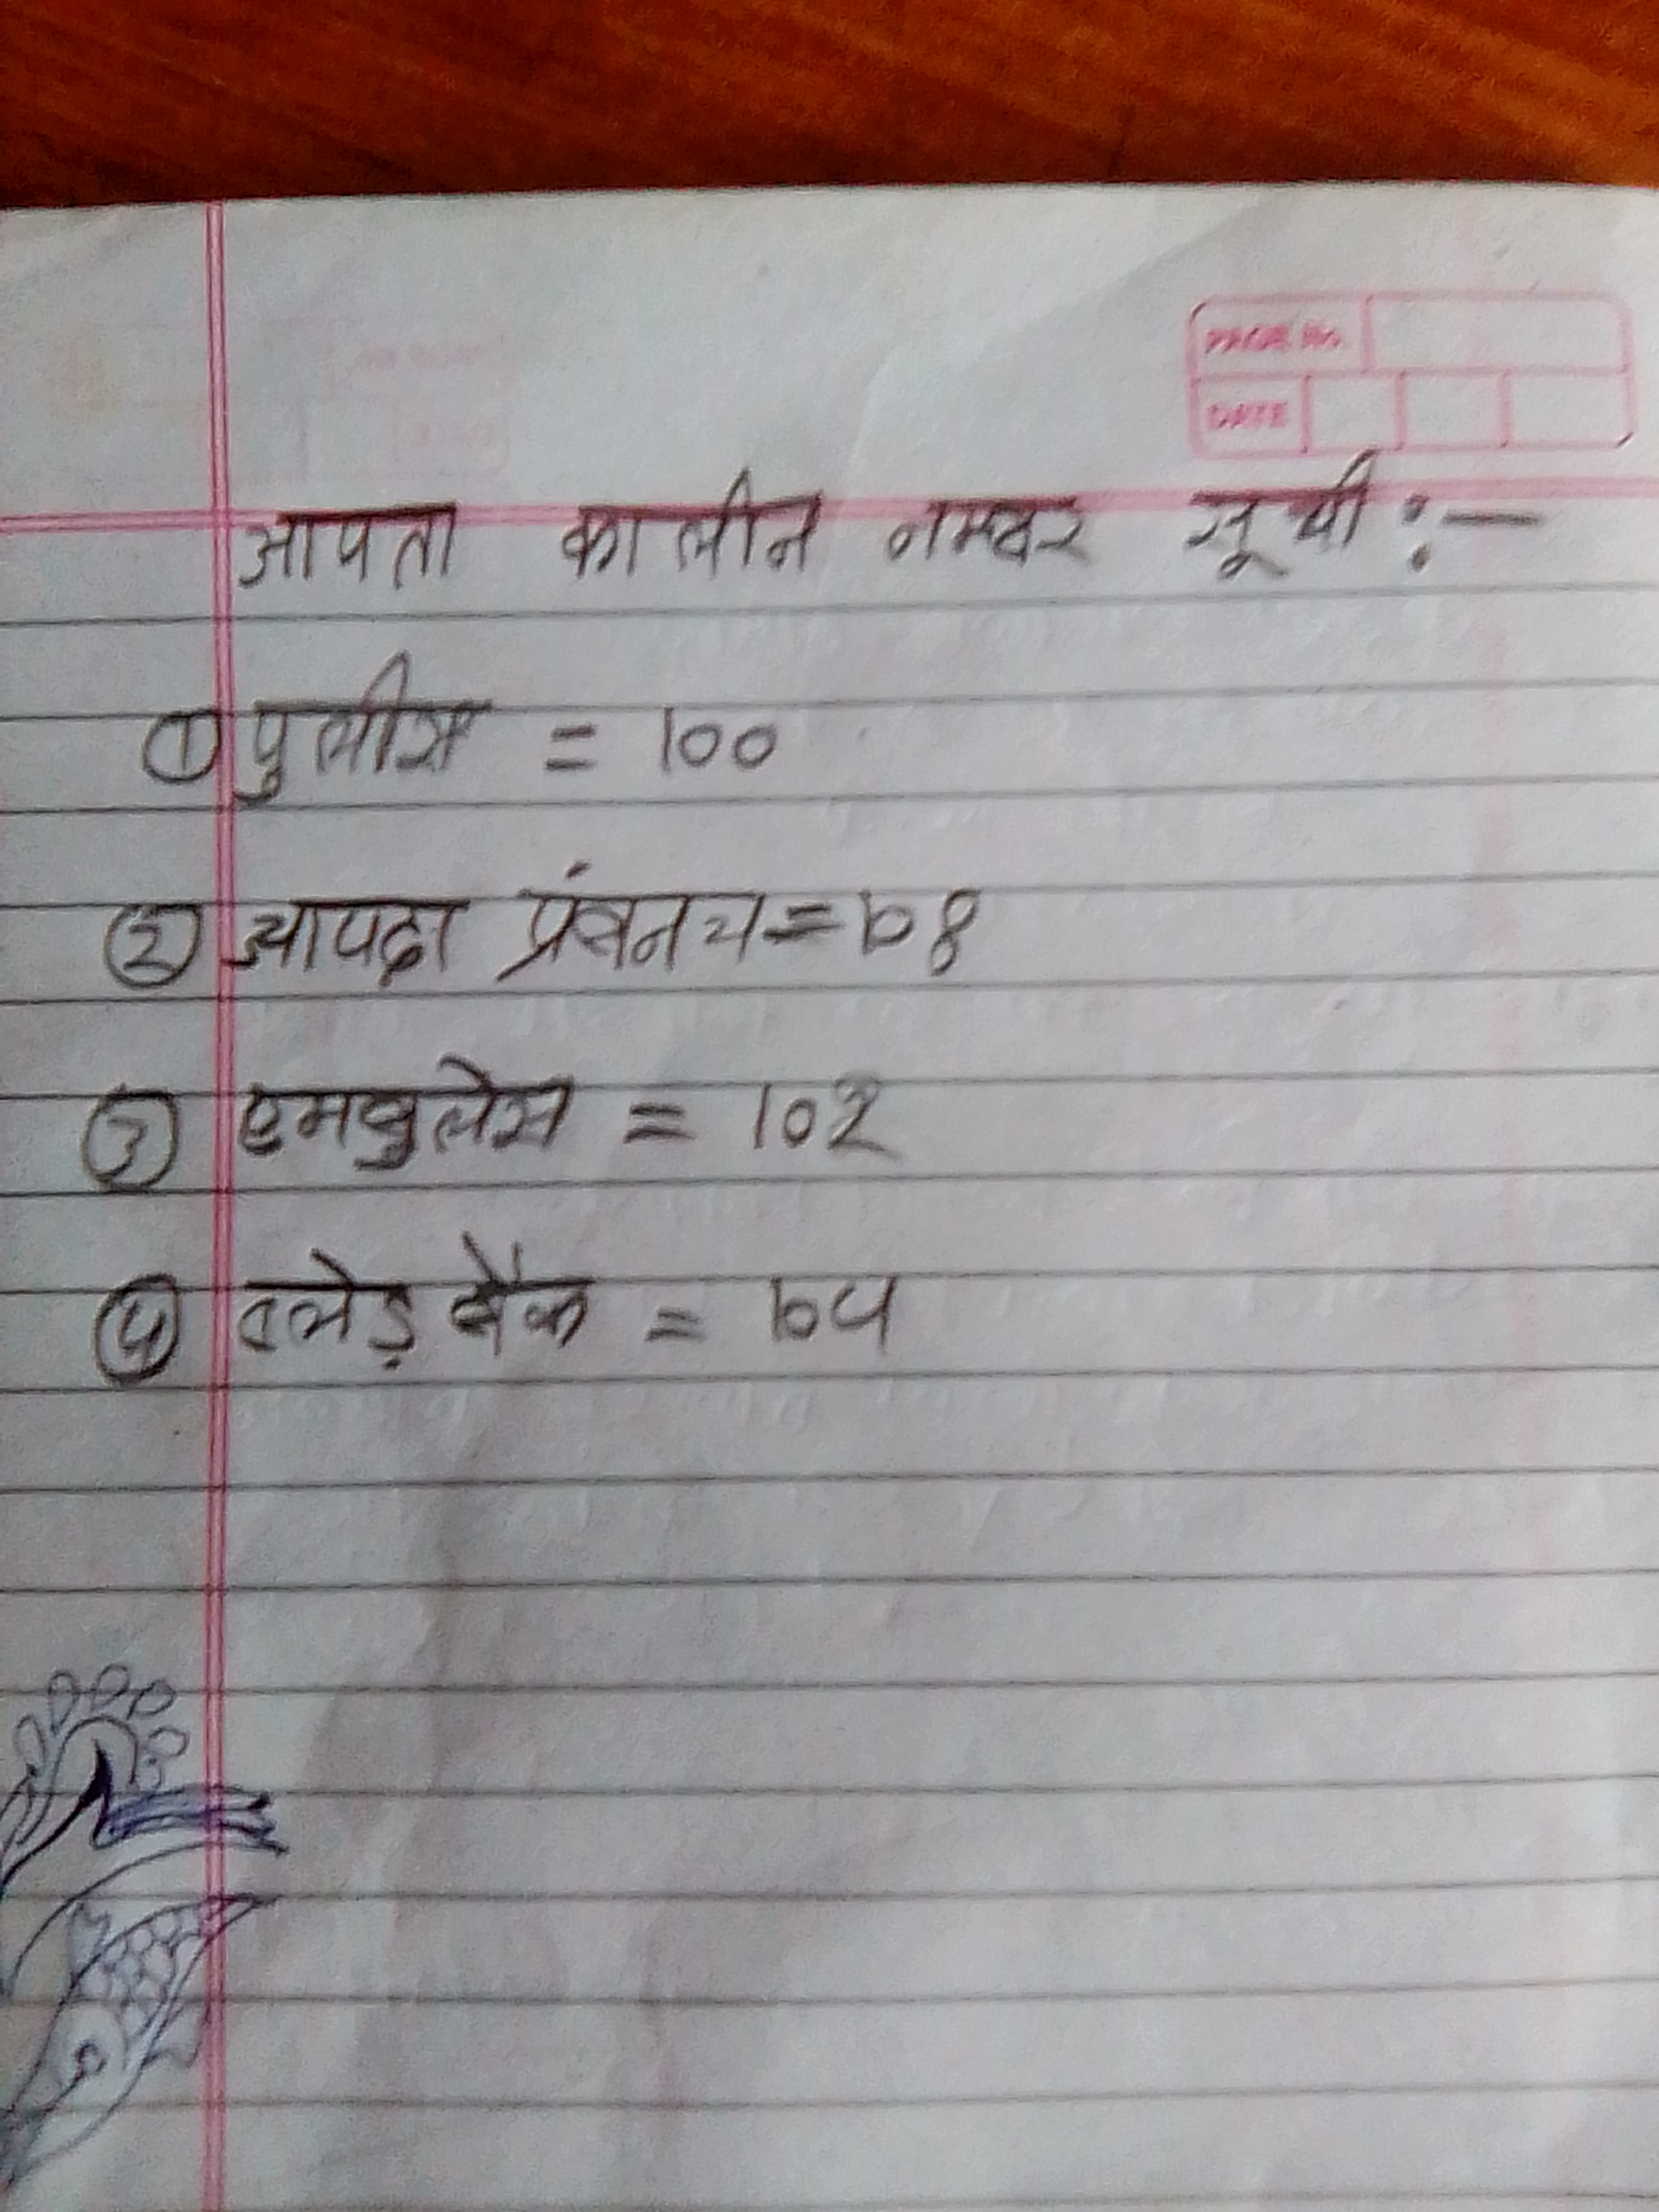 PAGE No.
DATE
आपता कालीन नम्बर सूची :-
① पुलीस = 100
② आपदा प्रंबनध = 108
③ एमबुलेस = 102
④ ब्लेड़ बैंक = 104